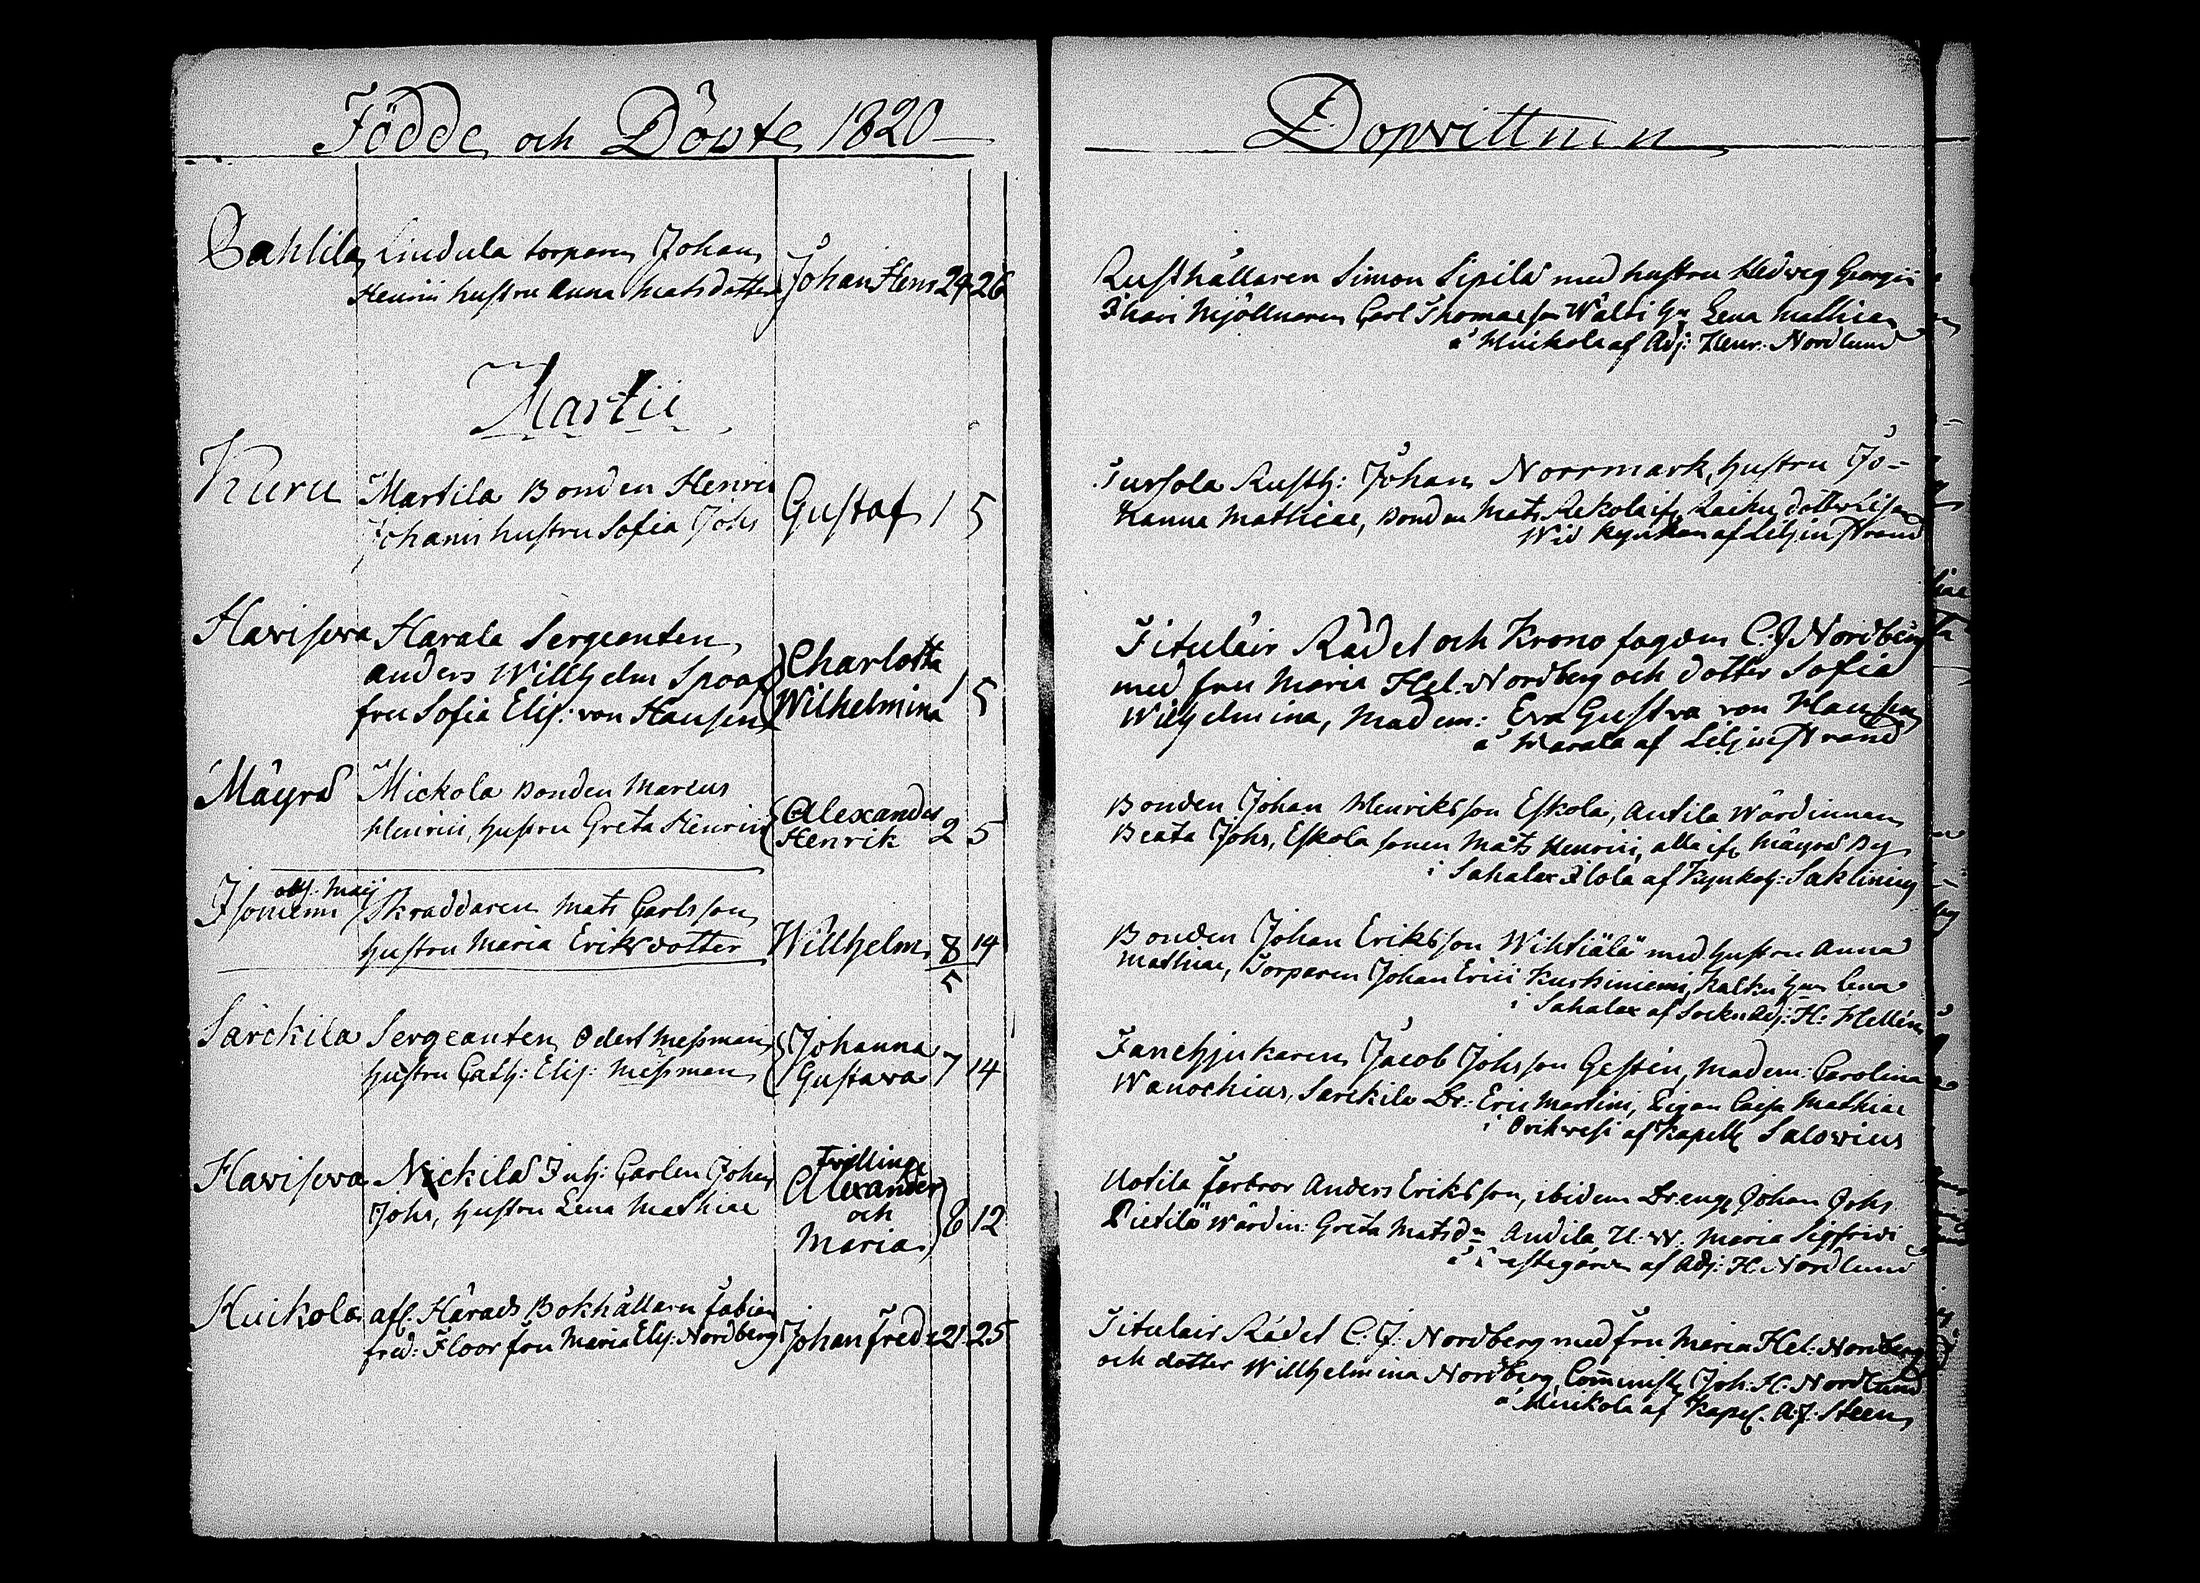 Födde och Döpte 1820
Dopvittnen
Sahlila Lindula torparen Johan
Henrici hustru Anna Matsdotter Johan Henr 24 26
Rusthållaren Simon Sipilä med hustru Hedvig Georgii
Ihari Mjöllnaren Carl Thomasson Walti Hu Lena Mathiae
å Huikola af Adj: Henr: Nordlund
Martii
Kuru Martila Bonden Henric
Johannis hustru Sofia Johs Gustaf 1 5
Tursola Rusth: Johan Norrmark, hustru Jo-
hanna Mathiae, Bonden Mats Rekola if Raiku, dotter Lisa
Wid Kyrkan af Liljinstrand
Havisevа Harala Sergeanten
Anders Willhelm Spoof
fru Sofia Elis: von Hausen
Charlotta
Wilhelmina 1 5
Titulair Rådet och Kronofogden C. J. Nordberg
med fru Maria Hel: Nordberg och dotter Sofia
Wilhelmina, Madem: Eva Gustva von Hausen
å Harala af Liljinstrand
Mäyrä Mickola Bonden Marcus
Henrici, hustru Greta Henrici
Alexander
Henrik 2 5
Bonden Johan Henriksson Eskola, Antila Wärdinnan
Beata Johs, Eskola sonen Mats Henrici, alla if Mäyrä By
i Sahalax Ilola af Kyrkoh: Saklinius
obs. Maij
Isoniemi Skraddaren Mats Carlsson
hustru Maria Eriksdotter Willhelm 8 14
5
Bonden Johan Eriksson Wihtiälä med hustru Anna
Mathiae, Torparen Johan Erici Kuskiniemi, Kalku Hu Lena
i Sahalax af Sockn Adj: H: Hellén
Särckilä Sergeanten Odert Messman
hustru Cath: Elis: Messman
Johanna
Gustava 7 14
Fanehjunkaren Jacob Johsson Gestén, Madem: Carolina
Wanochius, Särckilä Dr: Eric Martini, Pigan Caisa Mathiae
i Orihvesi af Kapell Salovius
Haviseva Nickilä Inh: Carlen Johan
Johs, hustru Lena Mathiae
Tvillingar
Alexander
och
Maria 8 12
Uotila farbror Anders Eriksson, ibidem Dreng Johan Johs
Pietilä Wärdin: Greta Matsdr Andila U. W. Maria Sigfridi
af Adj: H. Nordlund
Huikola afl. Härads Bokhållaren Fabian
Fred: Floor fru Maria Elis: Nordberg Johan Fred: 21 25
Titulair Rådet C. J. Nordberg med fru Maria Hel: Nordberg
och dotter Willhelmina Nordberg, Comminist Joh. H. Nordlund
å Huikola af Kapel. A. J. Steen